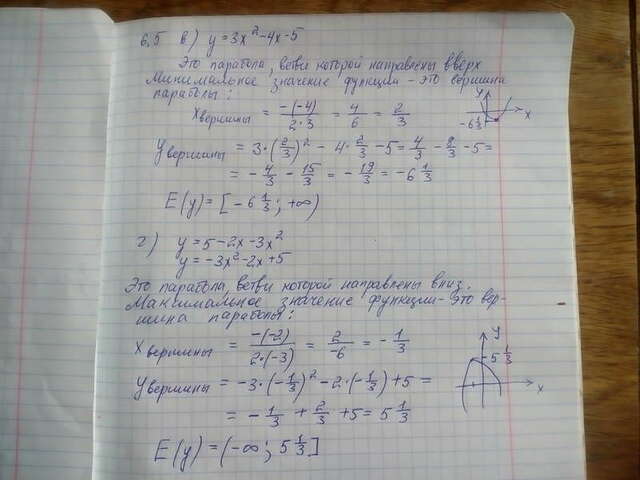 6.5 в) y = 3x² - 4x - 5
Это парабола, ветви которой направлены вверх
Минимальное значение функции - это вершина
параболы:
x вершины = -(-4)/2·3 = 4/6 = 2/3
y
x
-6 1/3
y вершины = 3·(2/3)² - 4·2/3 - 5 = 4/3 - 8/3 - 5 =
= -4/3 - 15/3 = -19/3 = -6 1/3
E(y) = [-6 1/3; +∞)
г) y = 5 - 2x - 3x²
y = -3x² - 2x + 5
Это парабола, ветви которой направлены вниз.
Максимальное значение функции - это вер-
шина параболы:
x вершины = -(-2)/2·(-3) = 2/-6 = -1/3
y
5 1/3
x
y вершины = -3·(-1/3)² - 2·(-1/3) + 5 =
= -1/3 + 2/3 + 5 = 5 1/3
E(y) = (-∞; 5 1/3]